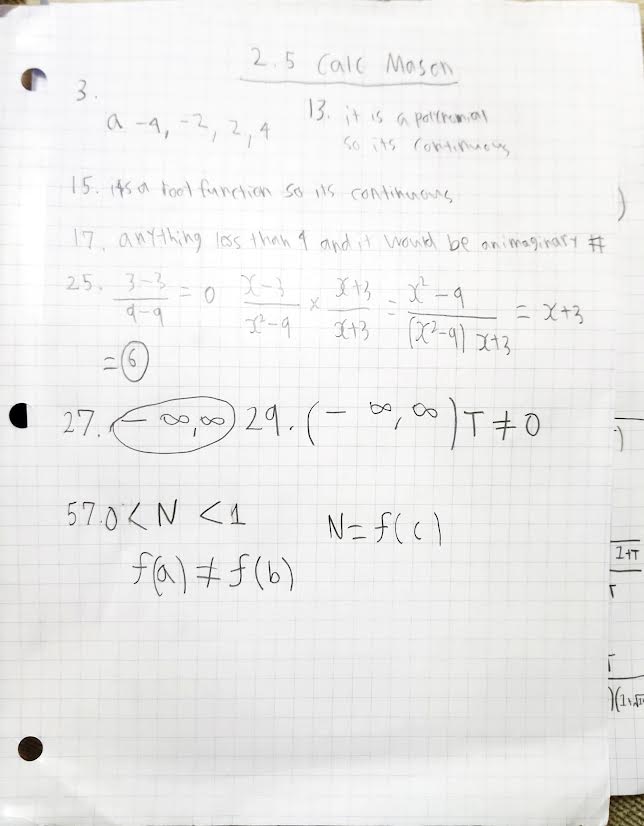 2.5 Calc Mason
3.
a -4, -2, 2, 4
13. it is a polynomial
so its continuous
15. its a root function so its continuous
17. anything less than 4 and it would be an imaginary #
25. 3-3/9-9 = 0 x-3/x²-9 × x+3/x+3 = x²-9/(x²-9) x+3 = x+3
= 6
27. -∞,∞ 29. (-∞,∞) T≠0
57. 0<N<1 N=f(c)
f(a)≠f(b)
)
1+T
T
T